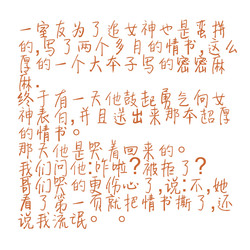 一室友为了追女神也是蛮拼
的，写了两个多月的情书，这么
厚的一个大本子写的密密麻
麻．
终于有一天他鼓起勇气向女
神表白，并且送出来那本超厚
的情书。
那天他是哭着回来的。
我们问他：咋啦？被拒了？
哥们哭的更伤心了，说：不，她
看了第一页就把情书撕了，还
说我流氓。。